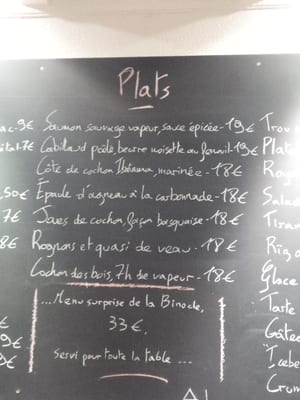 Plats
ac-9€ Saumon sauvage vapeur, sauce épicée-19€ Trou
ital-7€ Cabillaud poêlé, beurre noisette au fenouil-19€ Plate
Côte de cochon Ibérama, marinée - 18€
,50€ Epaule d'agneau à la carbonnade - 18€ Salad
7€ Joues de cochon, façon basquaise - 18€ Tiram
8€ Rognons et quasi de veau - 18€
Cochon des bois, 7h de vapeur - 18€ Glace
...Menu surprise de la Binocle, Tarte
33€, Gâte
9€ Servi pour toute la table ...
9€